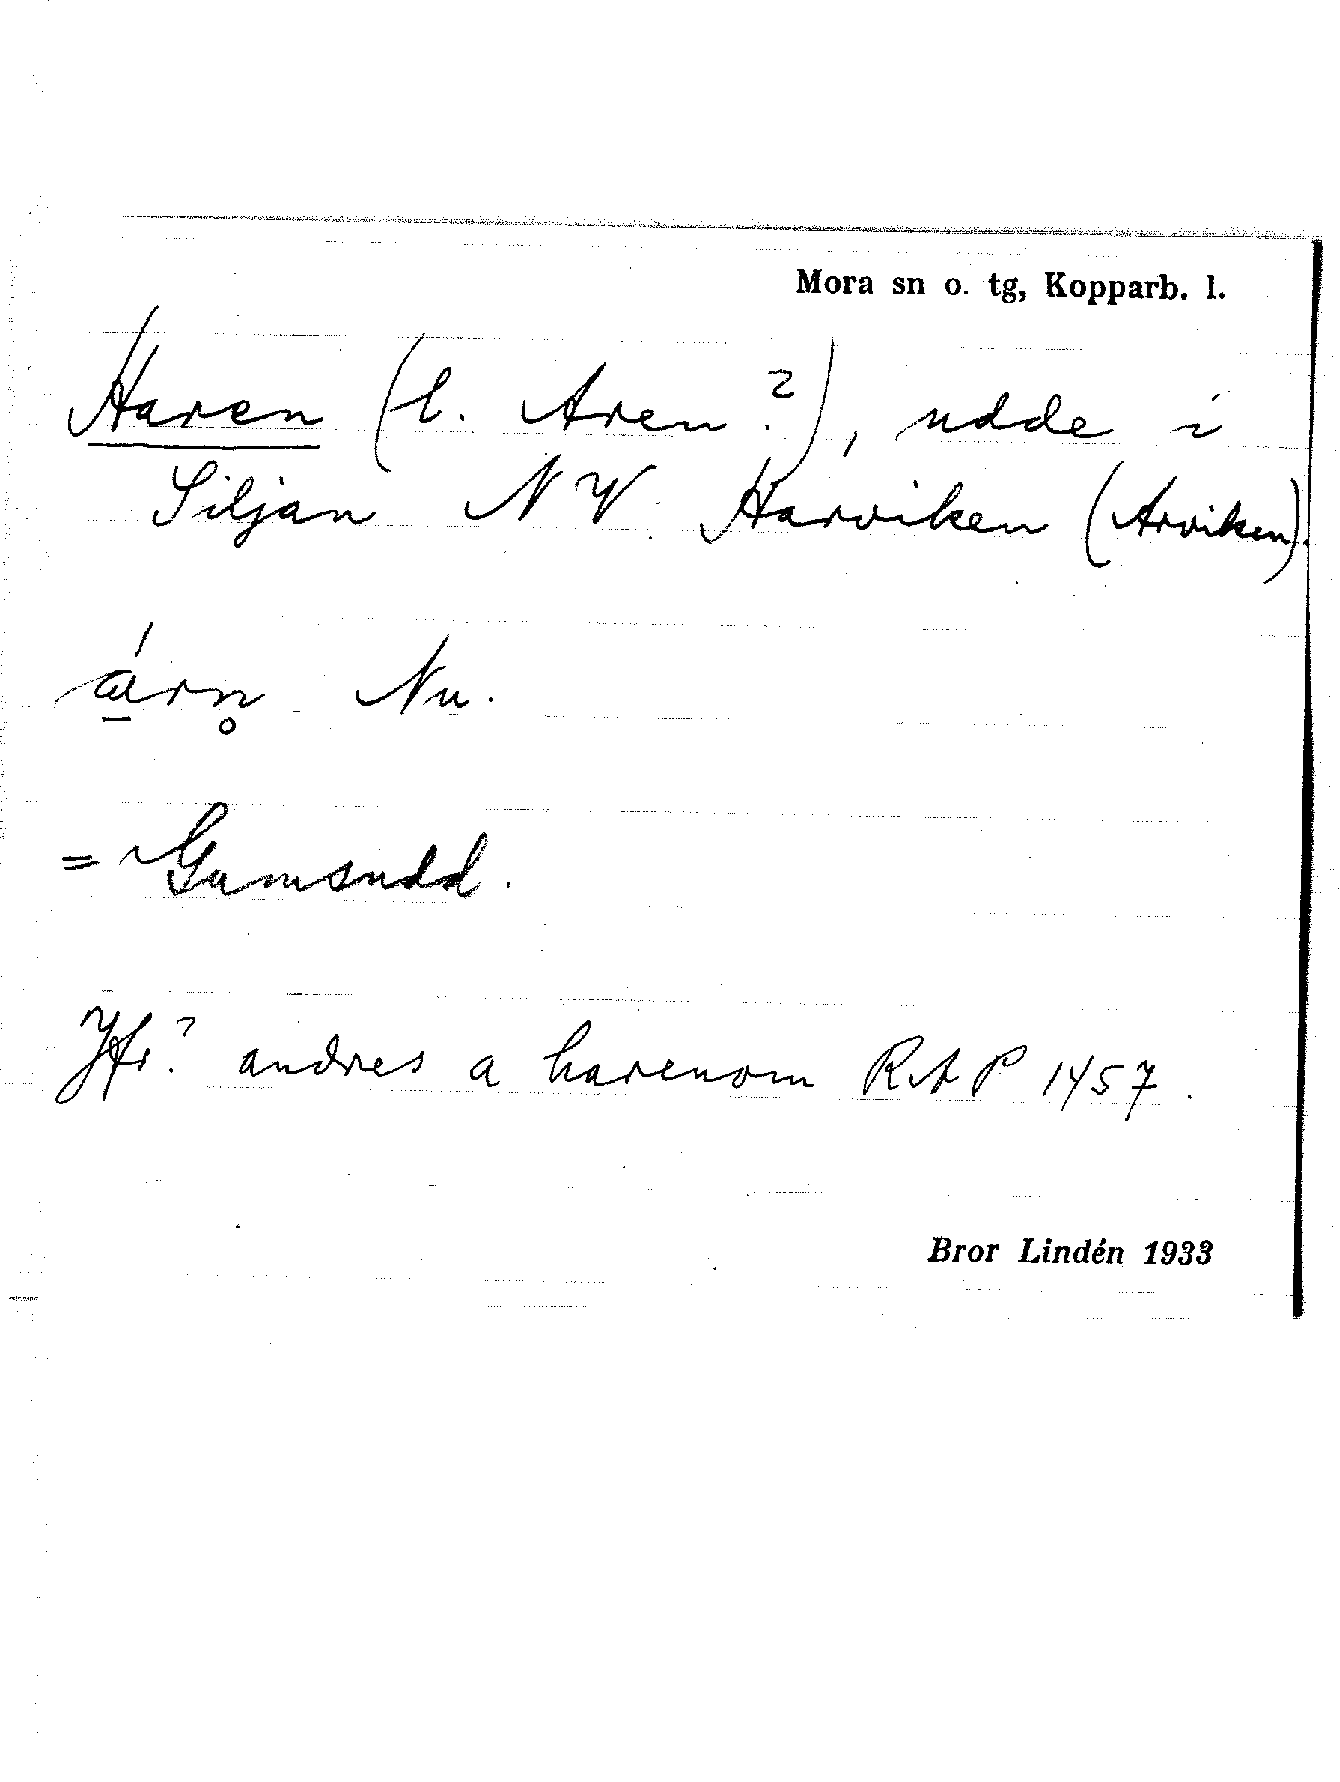 Mora sn o. tg, Kopparb. l.
Haren (l. Aren?), udde i
Siljan NV Harviken (Arviken).
Nu.
= Gumsudd.
Jfr? andres a harenom RAP 1457.
Bror Lindén 1933